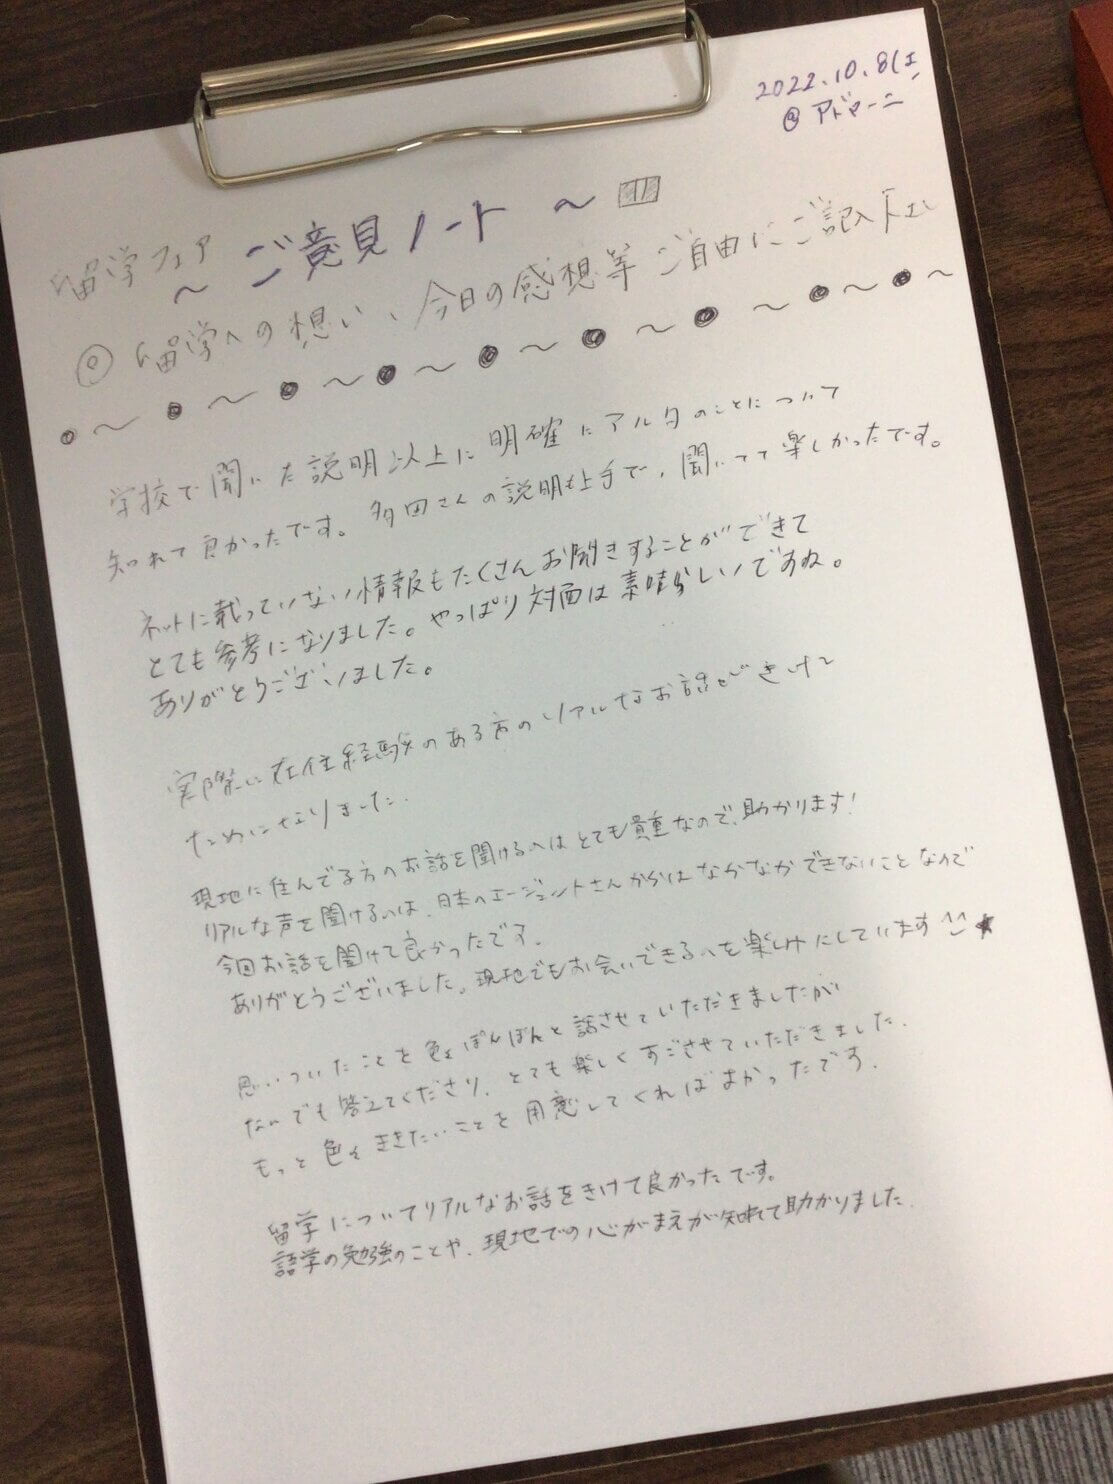 2022.10.8(土
@ アドマーニ
留学フェア
～ ご意見ノート ～
◎ 留学への想い、今日の感想等 ご自由にご記入下さい
学校で聞いた説明以上に明確にアルタのことについて
知れて良かったです。多田さんの説明も上手で、聞いてて楽しかったです。
ネットに載っていない情報もたくさんお聞きすることができて
とても参考になりました。やっぱり対面は素晴らしいですね。
ありがとうございました。
実際に在住経験のある方のリアルなお話がきけて
ためになりました.
現地に住んでる方のお話を聞けるのはとても貴重なので、助かります!
リアルな声を聞けるのは、日本のエージェントさんからはなかなかできないことなので
今回お話を聞けて良かったです.
ありがとうございました。現地でもお会いできるのを楽しみにしています^^ ★
思いついたことを色々ぽんぽんと話させていただきましたが
なんでも答えてくださり、とても楽しくすごさせていただきました.
もっと色々ききたいことを用意してくればよかったです.
留学についてリアルなお話をきけて良かったです。
語学の勉強のことや、現地での心がまえが知れて助かりました.